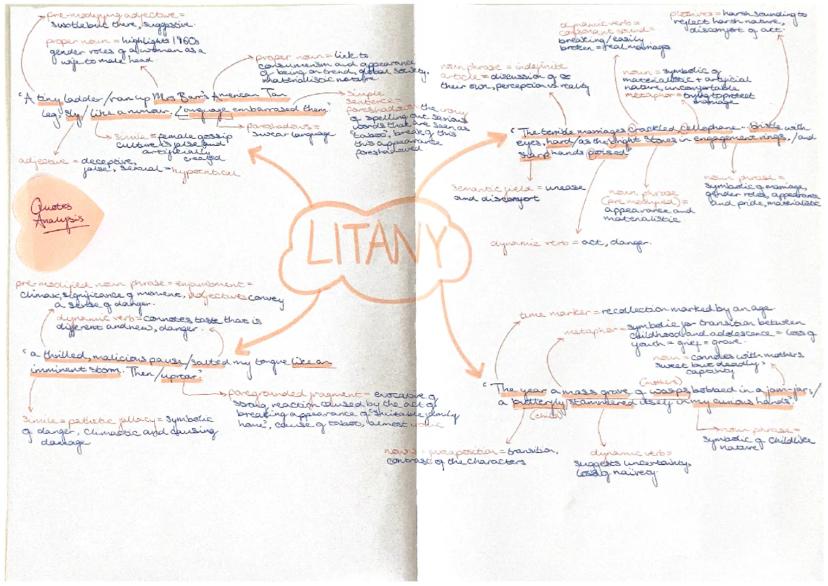 pre-modifying adjective =
subtle but there, suggestive.
proper noun = highlights 1960s
gender roles of a woman as a
wife to male head
proper noun = link to
consumerism and appearance
of being on trend, global society,
materialistic nature
"A tiny ladder/ran up Mrs Barr's American Tan
leg, sly/like a rumour. Language embarrassed them"
simile = female gossip
culture is false and
artificially
created
adjective = deceptive,
false, sexual = hypocritical
foreshadows =
swear language
simple
sentence =
foreshadows the irony
of spelling out serious
words that are seen as
taboo, break of this
this appearance
foreshadowed
Quotes
Analysis
LITANY
dynamic verb =
consonant sound =
breaking/easily
broken = real marriage
plosives = harsh sounding to
reflect harsh nature,
discomfort of act.
noun phrase = indefinite
article = discussion of
their own, perception vs reality
noun = symbolic of
materialistic + artificial
nature, uncomfortable
metaphor = trying to protect
damage
"The terrible marriages crackled cellophane - Bristle with
eyes, hard/as the bright stones in engagement rings,/and
sharp hands poised
semantic field = unease
and discomfort
noun phrase
(pre modified) =
appearance and
materialistic
noun phrase =
symbolic of marriage,
gender roles, appearance
and pride, materialistic
dynamic verb = act, danger.
pre-modified noun phrase = enjambment =
climax, significance of moment, adjectives convey
a sense of danger.
dynamic verb = connotes taste that is
different and new, danger.
"a thrilled, malicious pause/salted my tongue like an
imminent storm. Then/uproar"
simile = pathetic fallacy = symbolic
of danger, climactic and causing
damage
foregrounded fragment = evocative of
strong reaction caused by the act of
breaking appearance of "suitable family
home", cause of taboo, almost
time marker = recollection marked by an age.
metaphor = symbolic for transition between
childhood and adolescence = loss of
youth = grief = grave.
noun = connotes with mothers
sweet but deadly,
captivity
(mothers)
"The year a mass grave of wasps bobbed in a jam-jar,/
a butterfly stammered itself in my curious hands"
(child)
noun juxtaposition = transition,
contrast of the characters
dynamic verb =
suggests uncertainty,
loss of naivety
noun phrase =
symbolic of childlike
nature